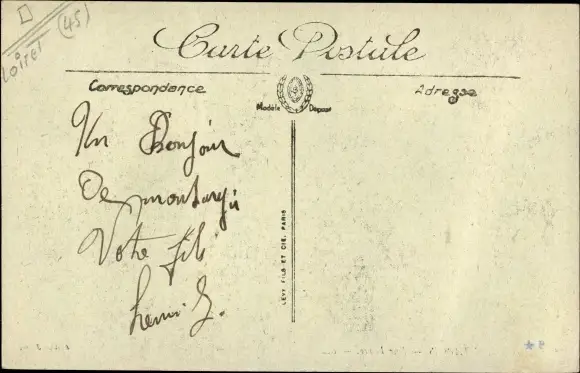 LOIRET (45)
Carte Postale
Correspondance
Adresse
Modèle Déposé
Un Bonjour
De montargis
Votre fils
henri G.
LEVY FILS ET CIE, PARIS